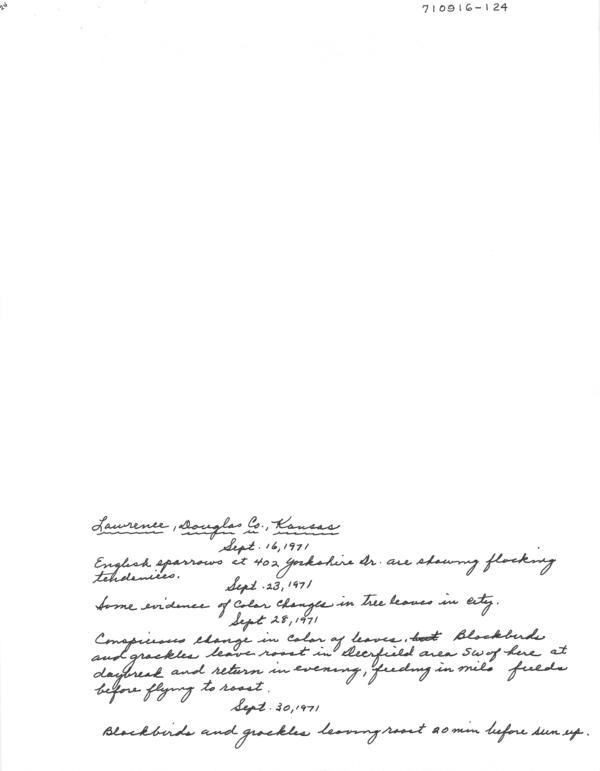 710916-124
Lawrence, Douglas Co., Kansas
Sept. 16, 1971
English sparrows at 402 Yorkshire Dr. are showing flocking
tendencies.
Sept. 23, 1971
Some evidence of color changes in tree leaves in city.
Sept 28, 1971
Conspicuous change in color of leaves, but Blackbirds
and grackles leave roost in Deerfield area SW of here at
daybreak and return in evening, feeding in milo fields
before flying to roost.
Sept. 30, 1971
Blackbirds and grackles leaving roost 20 min before sun up.